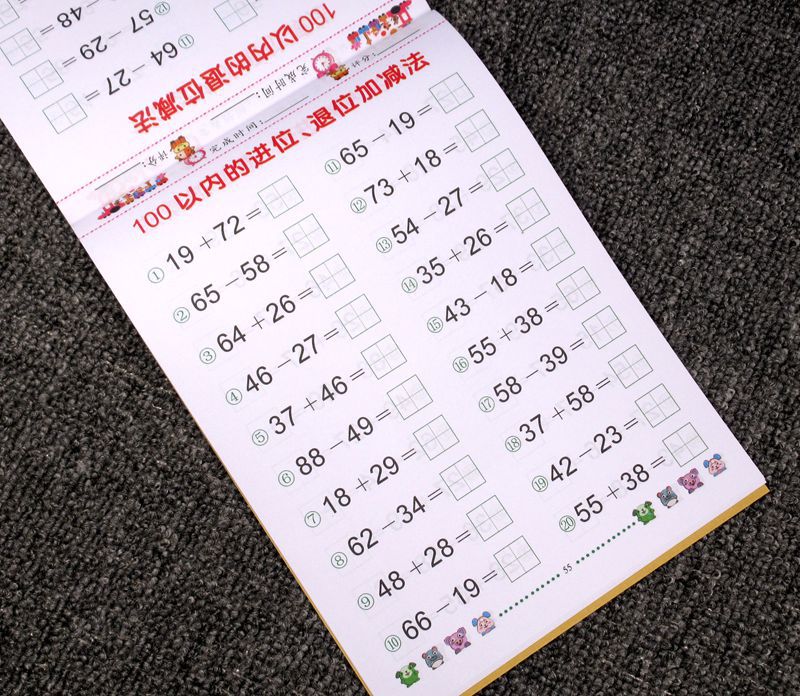 ⑫ 57 - 29
48 =
⑪ 64 - 27 =
100以内的退位减法
完成时间：
评分：
评分：
完成时间：
100以内的进位、退位加减法
① 19 + 72 =
② 65 - 58 =
③ 64 + 26 =
④ 46 - 27 =
⑤ 37 + 46 =
⑥ 88 - 49 =
⑦ 18 + 29 =
⑧ 62 - 34 =
⑨ 48 + 28 =
⑩ 66 - 19 =
⑪ 65 - 19 =
⑫ 73 + 18 =
⑬ 54 - 27 =
⑭ 35 + 26 =
⑮ 43 - 18 =
⑯ 55 + 38 =
⑰ 58 - 39 =
⑱ 37 + 58 =
⑲ 42 - 23 =
⑳ 55 + 38 =
55